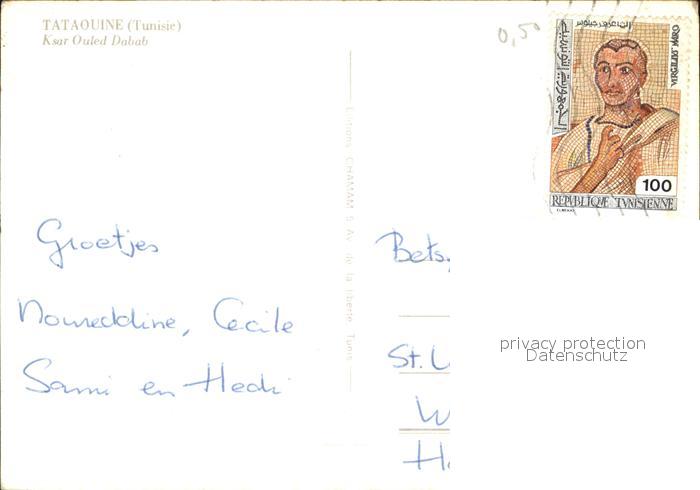 TATAOUINE (Tunisie)
Ksar Ouled Dabab
0,50
VIRGILIUS MARO
الجمهورية التونسية
100
REPUBLIQUE TUNISIENNE
Editions CHAMAM 5 Av. de la liberté Tunis
Groetjes
Noureddine, Cecile
Sami en Hedi
Bets
St.
W
H
privacy protection
Datenschutz